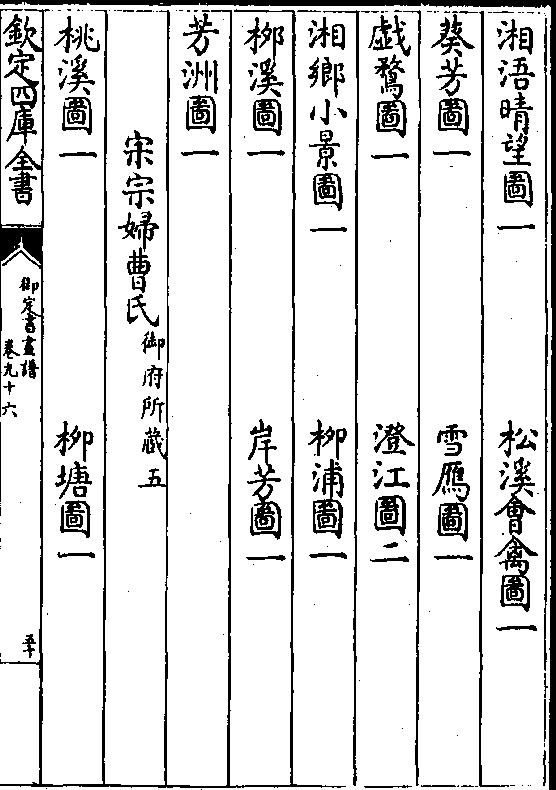 湘浯晴望圖一　松溪會禽圖一
葵芳圖一　雪鴈圖一
戱鶩圖一　澄江圖二
湘鄉小景圖一　柳浦圖一
柳溪圖一　岸芳圖一
芳洲圖一
宋宗婦曹氏御府所藏五
桃溪圖一　柳塘圖一
欽定四庫全書
御定書畫譜
卷九十六
五十